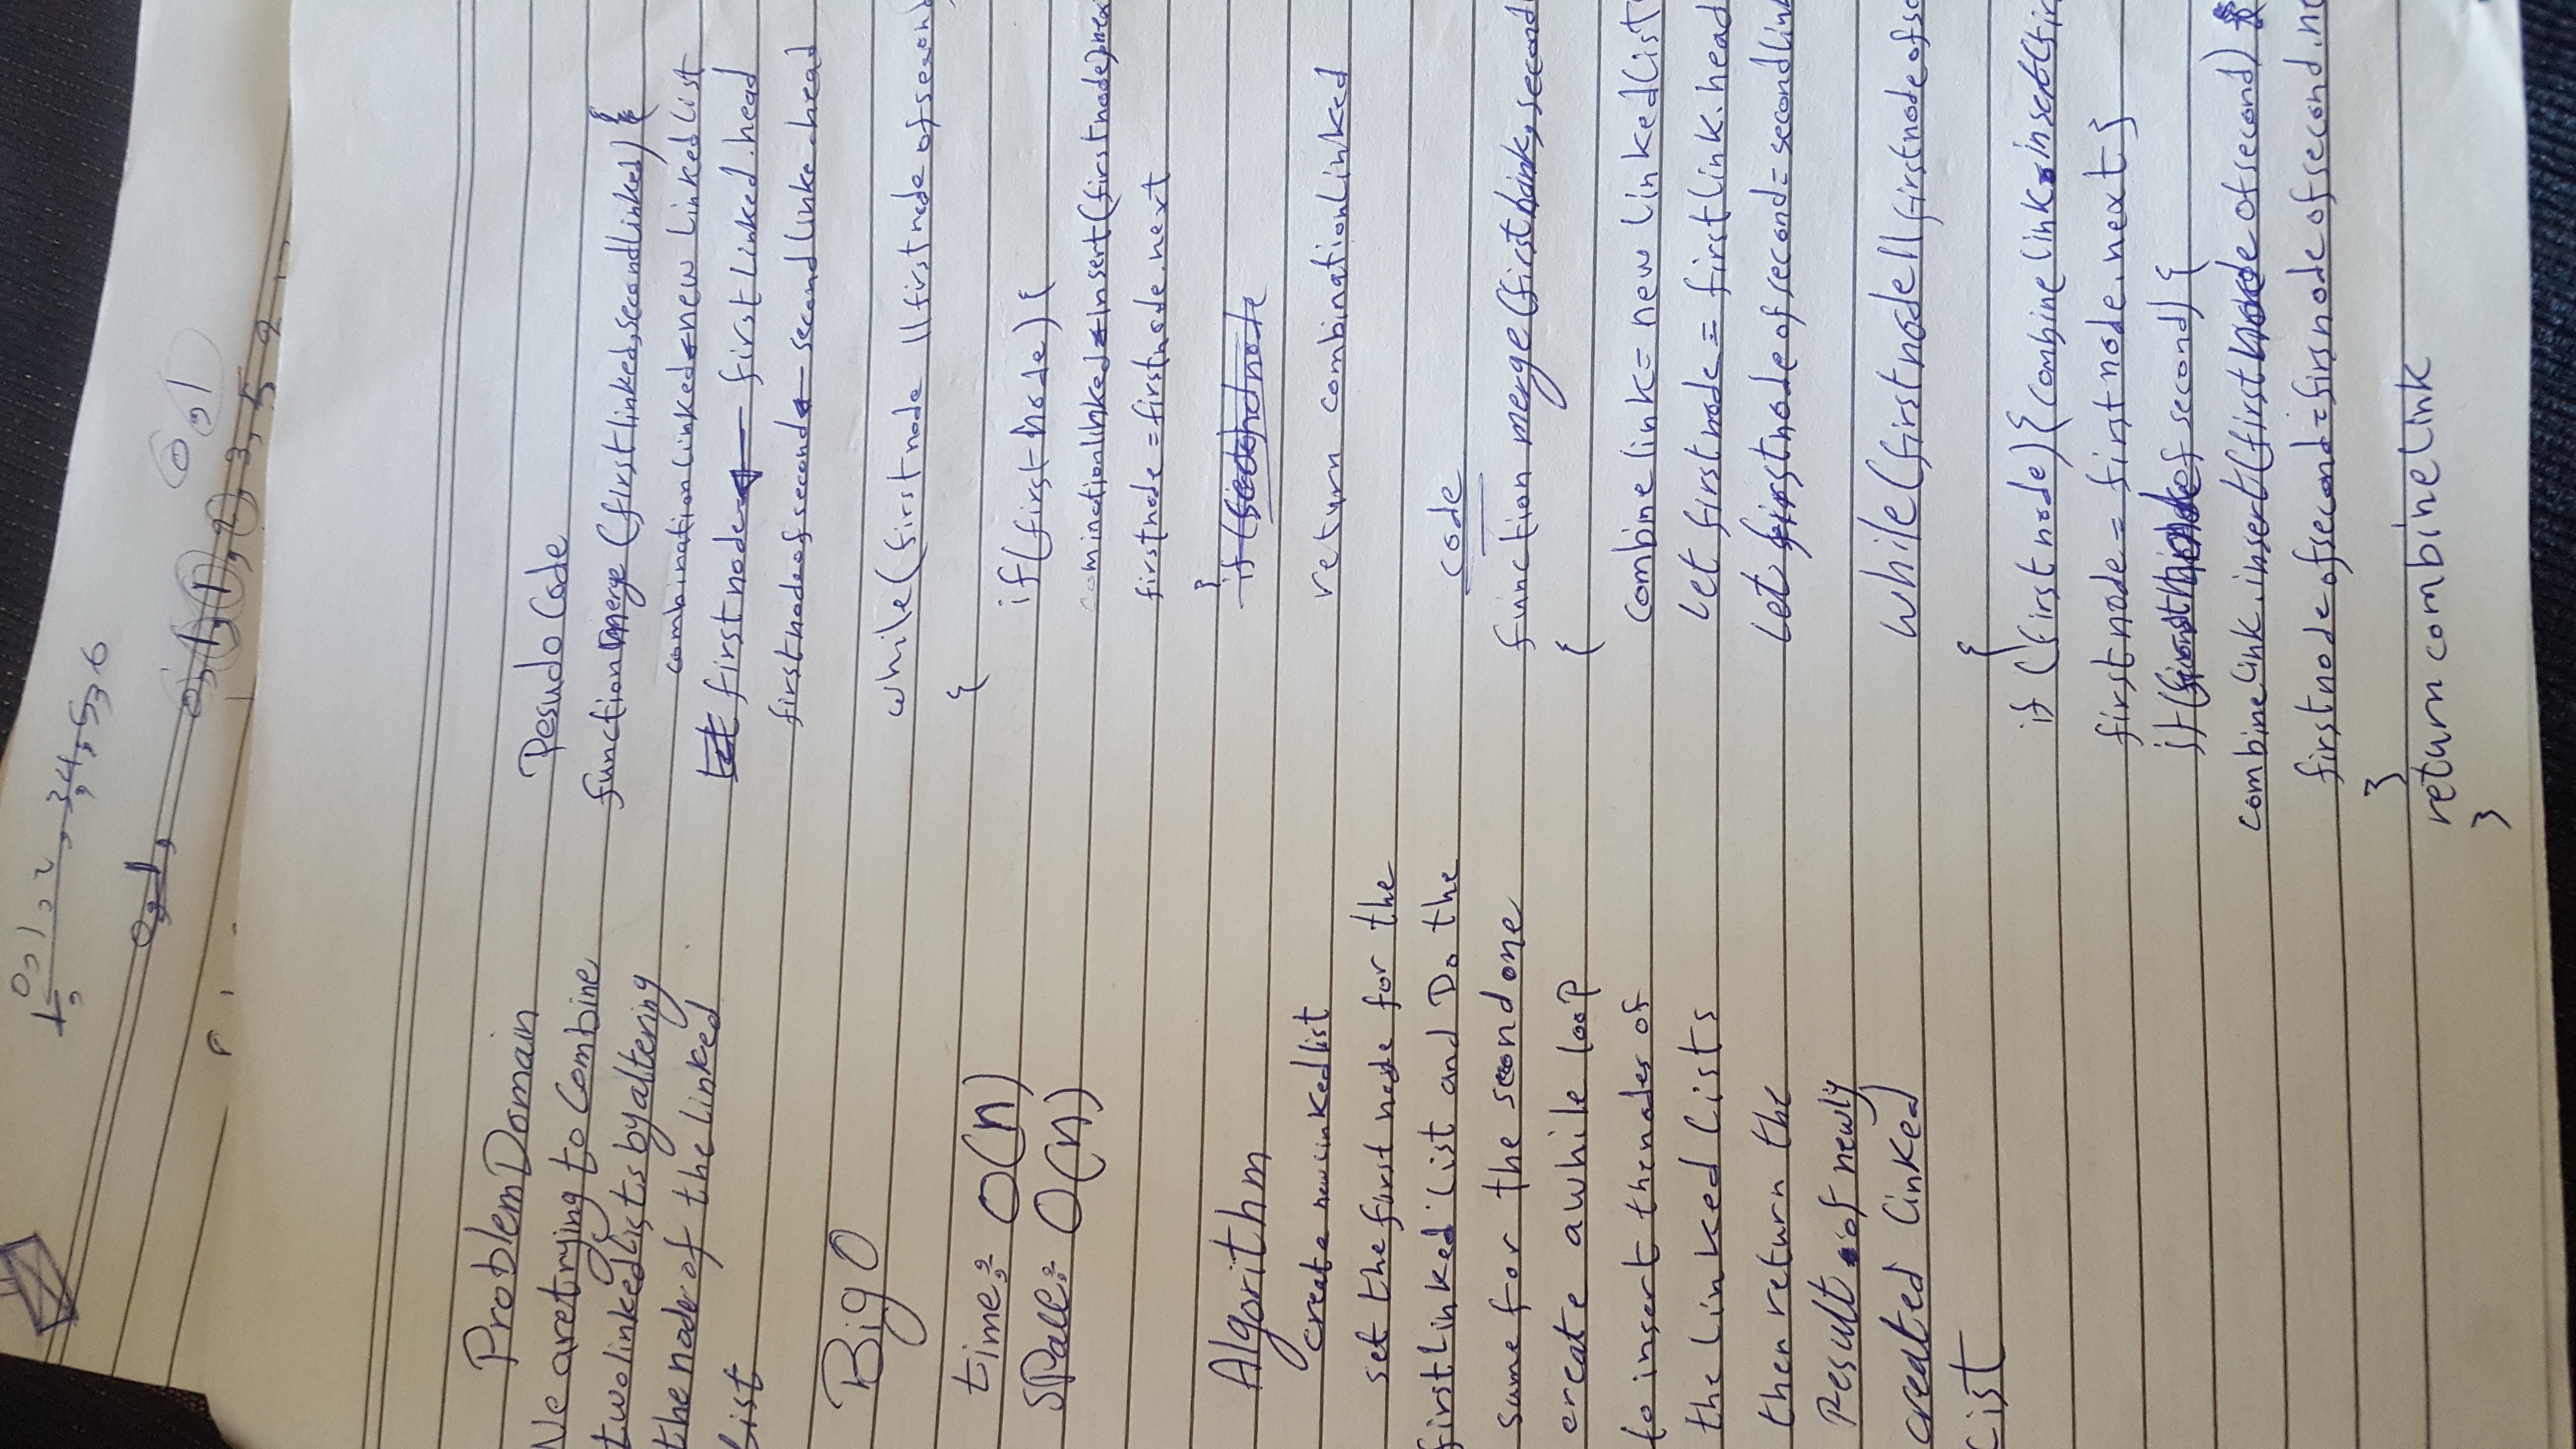 0, 1, 2, 3, 4, 5, 6
1,
0, 1,
0, 1
0, 1, 1, 2, 3, 5
Problem Domain
We are trying to Combine
two linked lists by altering
the node of the linked
list
Big O
time: O(n)
space: O(n)
Algorithm
create new linked list
set the first node for the
first Linked List and Do the
same for the second one
create a while loop
to insert the nodes of
the Linked Lists
then return the
Result of newly
created linked
List
Pesudo Code
function merge (first linked, second linked) {
combination linked ← new Linked List
first node ← first Linked.head
first node of second ← second linke.head
while (first node || first node of second
{
if (first node) {
cominction linked ← insert (first node).nex
first node = first node.next
}
if (second node
return combination Linked
code
function merge (first link, second
{
combine link = new linked List
let first node = first link.head
Let first node of second = second link
while (first node || first node of se
{
if (first node) { combine link.insert (fir
first node = first node.next }
if (first node of second) {
combine link.insert (first node of second)
first node of second = firs node of second.ne
}
return combine link
}